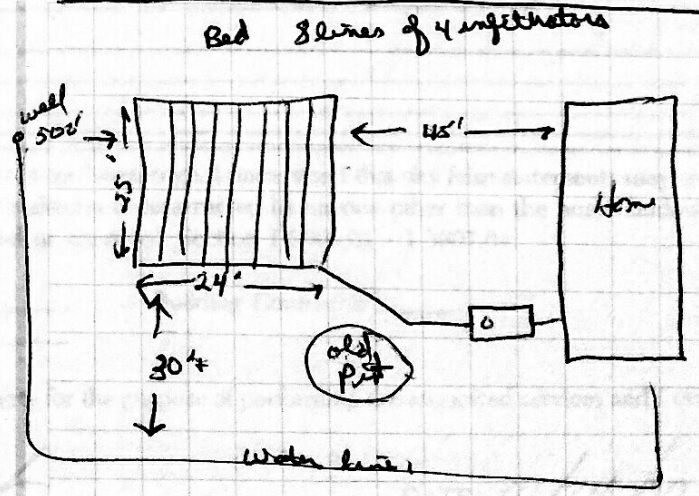 Bed 8 lines of 4 infiltrators
well
500'
45'
25'
Home
24'
0
old
Pit
30'+
Water line